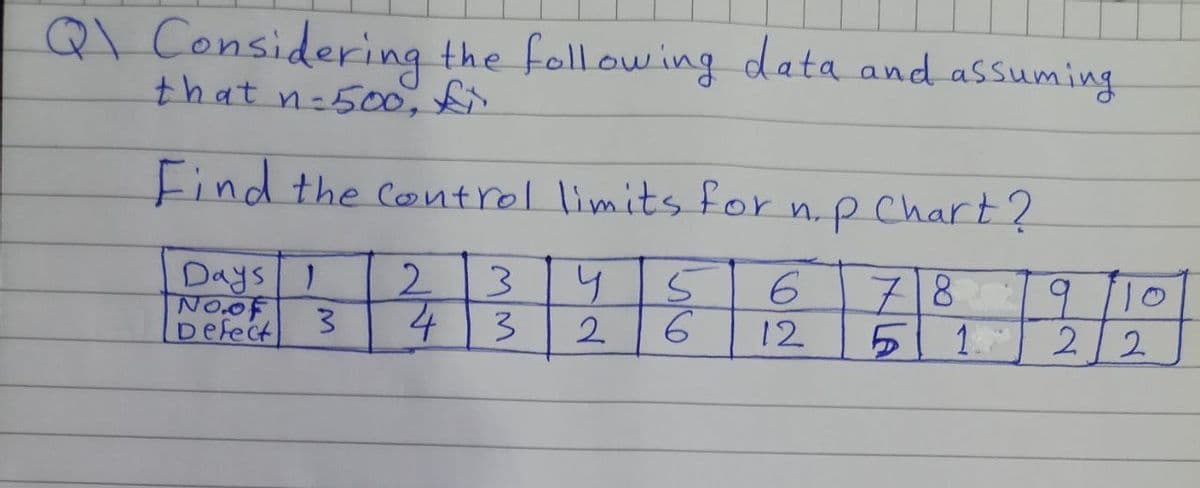 Q\ Considering the following data and assuming
that n=500,
Find the Control limits for n.p Chart?
Days 1 2 3 4 5 6 7 8 9 10
NO.OF Defect 3 4 3 2 6 12 5 1 2 2